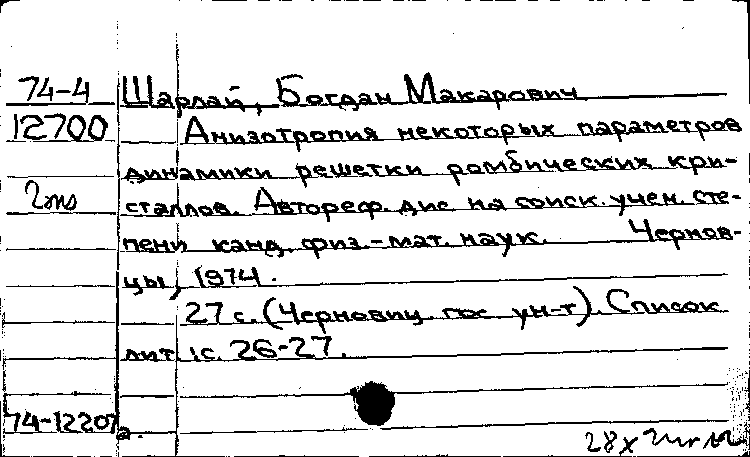 74-4 Шарлай, Богдан Макарович
12700 Анизотропия некоторых параметров
динамики решетки ромбических кри-
2 сталлов. Автореф. дис на соиск. учен. сте-
пени канд. физ.-мат. наук. Чернов-
цы, 1974.
27 с. (Черновиц. гос ун-т). Список
лит: с. 26-27.
74-12207а.
28 х